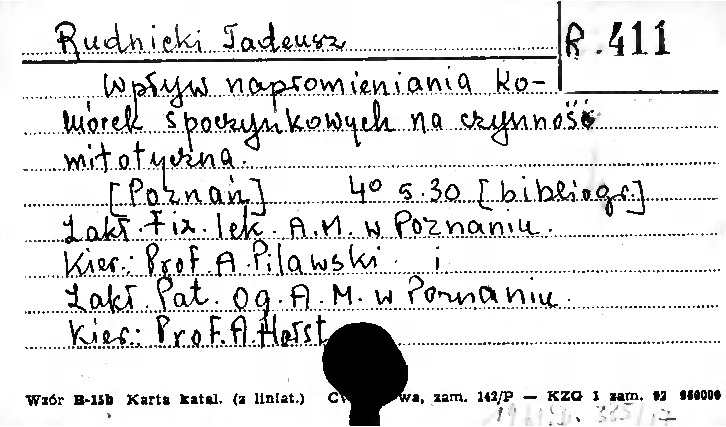 Rudnicki Tadeusz
R.411
Wpływ napromieniania ko-
mórek spoczynkowych na czynność
mitotyczną.
[Poznań] 4° s.30 [bibliogr.]
Zakł. Fiz. lek. A.M. w Poznaniu.
Kier.: Prof A.Piławski. i
Zakł. Pat. Og. A.M. w Poznaniu.
Kier.: Prof. A.Horst
Wzór B-15b Karta katal. (z liniat.) wa, zam. 142/P — KZG 1 zam.